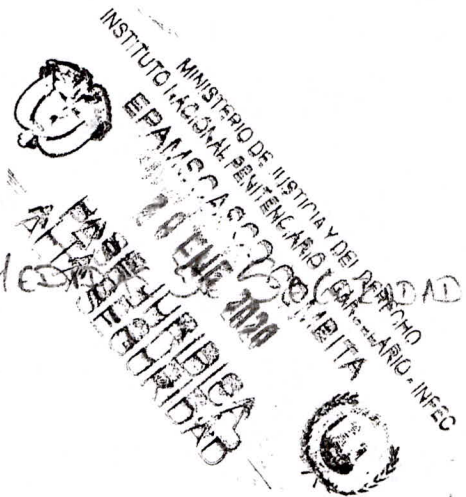 MINISTERIO DE JUSTICIA Y DEL DERECHO
INSTITUTO NACIONAL PENITENCIARIO Y CARCELARIO - INPEC
EPAMSCASCO COMBITA
20 ENE 2020
PASE JURIDICA
ALTA SEGURIDAD